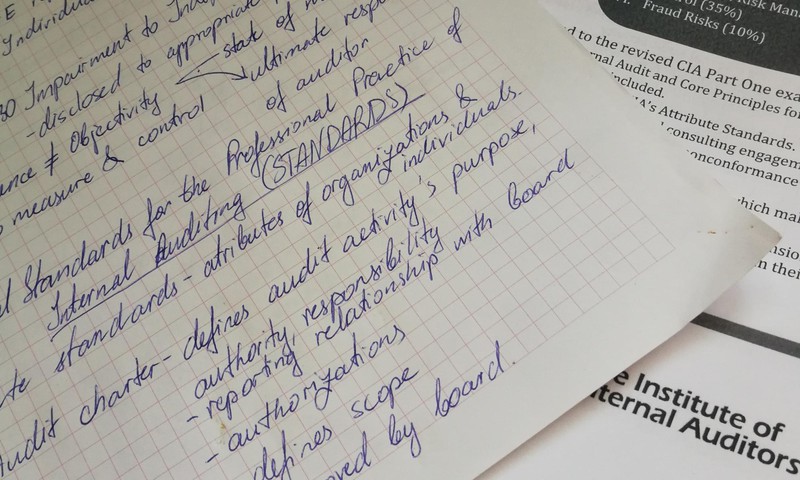 individual
30 Impairment to
- disclosed to appropriate
state of
ultimate
≠ Objectivity
of auditor
measure & control
Standards for the Professional Practice of
Internal Auditing (STANDARDS)
standards - atributes of organizations &
individuals.
charter - defines audit activity's purpose,
authority, responsibility
- reporting relationship with board
- authorizations
defines scope
by board.
Risk
(35%)
Fraud Risks (10%)
to the revised CIA Part One
Audit and Core Principles for
included.
Attribute Standards.
consulting
nonconformance
which
Institute of
Internal Auditors